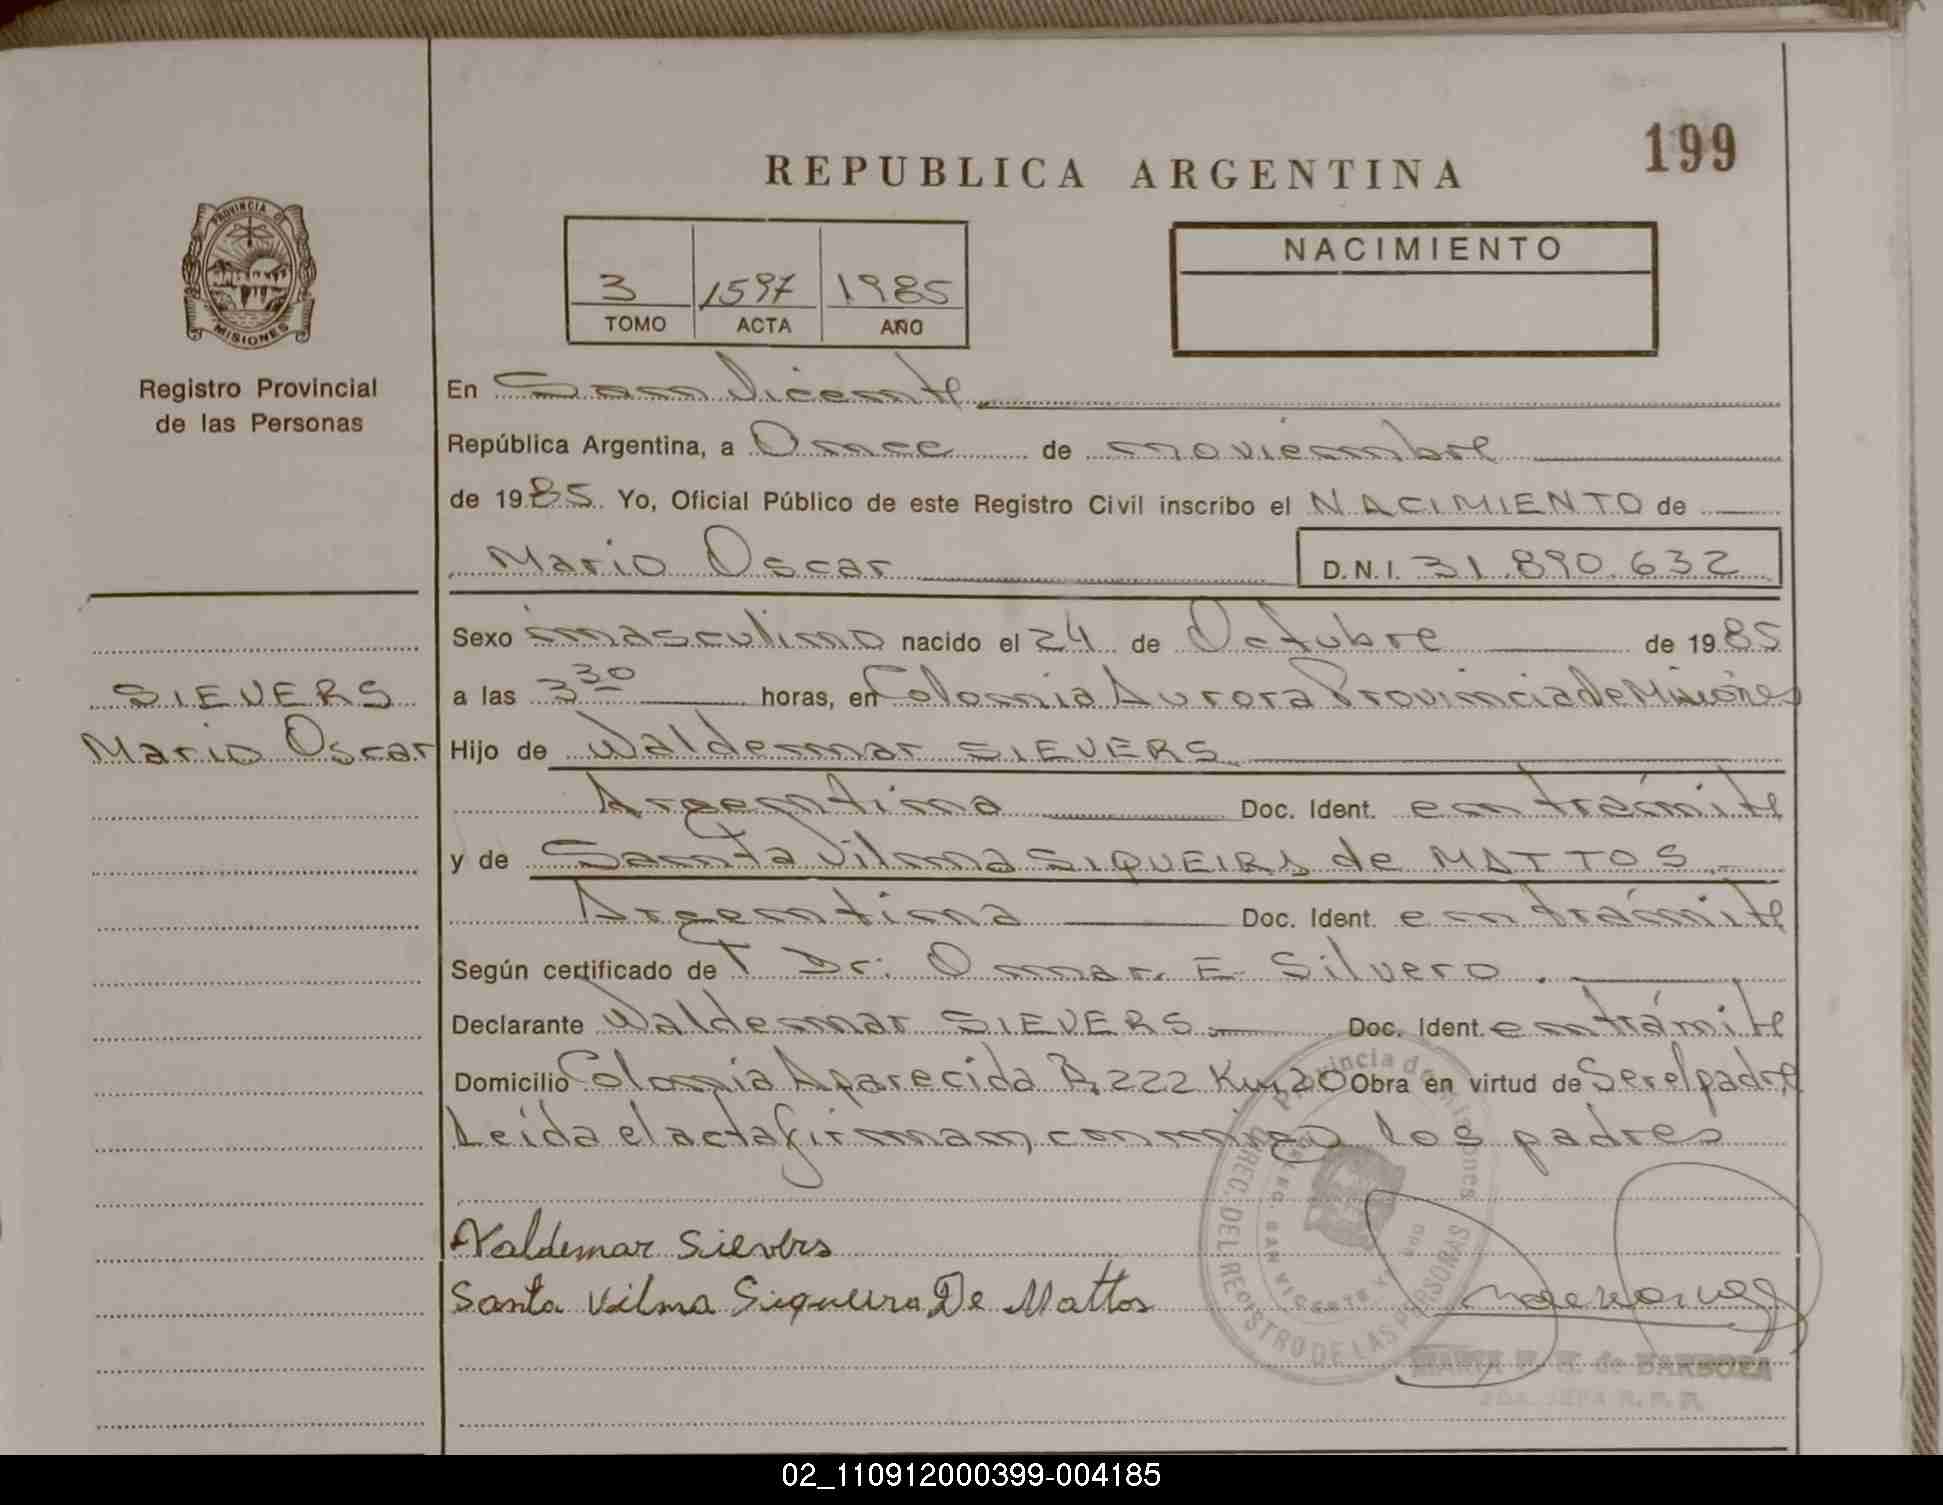 199
REPUBLICA ARGENTINA
PROVINCIA DE
MISIONES
Registro Provincial
de las Personas
3 1597 1985
TOMO ACTA AÑO
NACIMIENTO
En San Vicente
República Argentina, a Once de noviembre
de 1985. Yo, Oficial Público de este Registro Civil inscribo el NACIMIENTO de
Mario Oscar D.N.I. 31.890.632
Sexo masculino nacido el 24 de Octubre de 1985
SIEVERS
Mario Oscar
a las 3 30 horas, en Colonia Aurora Provincia de Misiones
Hijo de Waldemar SIEVERS
Argentina Doc. Ident. en trámite
y de Santa Vilma SIQUEIRA de MATTOS
Argentina Doc. Ident. en trámite
Según certificado de Dr. Omar E. Silvero
Declarante Waldemar SIEVERS Doc. Ident. en trámite
Domicilio Colonia Aparecida R. 222 Km 20 Obra en virtud de Ser el padre
Leída el acta firman conmigo los padres
Valdemar Sievers
Santa Vilma Siqueira De Mattos
Provincia de Misiones
DIREC. DEL REGISTRO DE LAS PERSONAS
SAN VICENTE
MARIA de BARBOZA
02_110912000399-004185